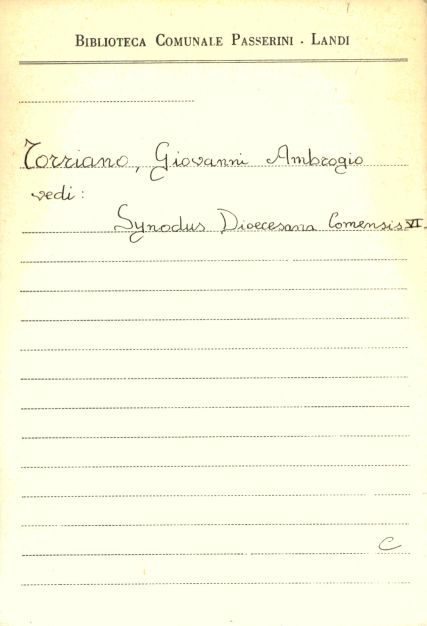 BIBLIOTECA COMUNALE PASSERINI - LANDI
Torriano, Giovanni Ambrogio
vedi:
Synodus Dioecesana Comensis VI.
C